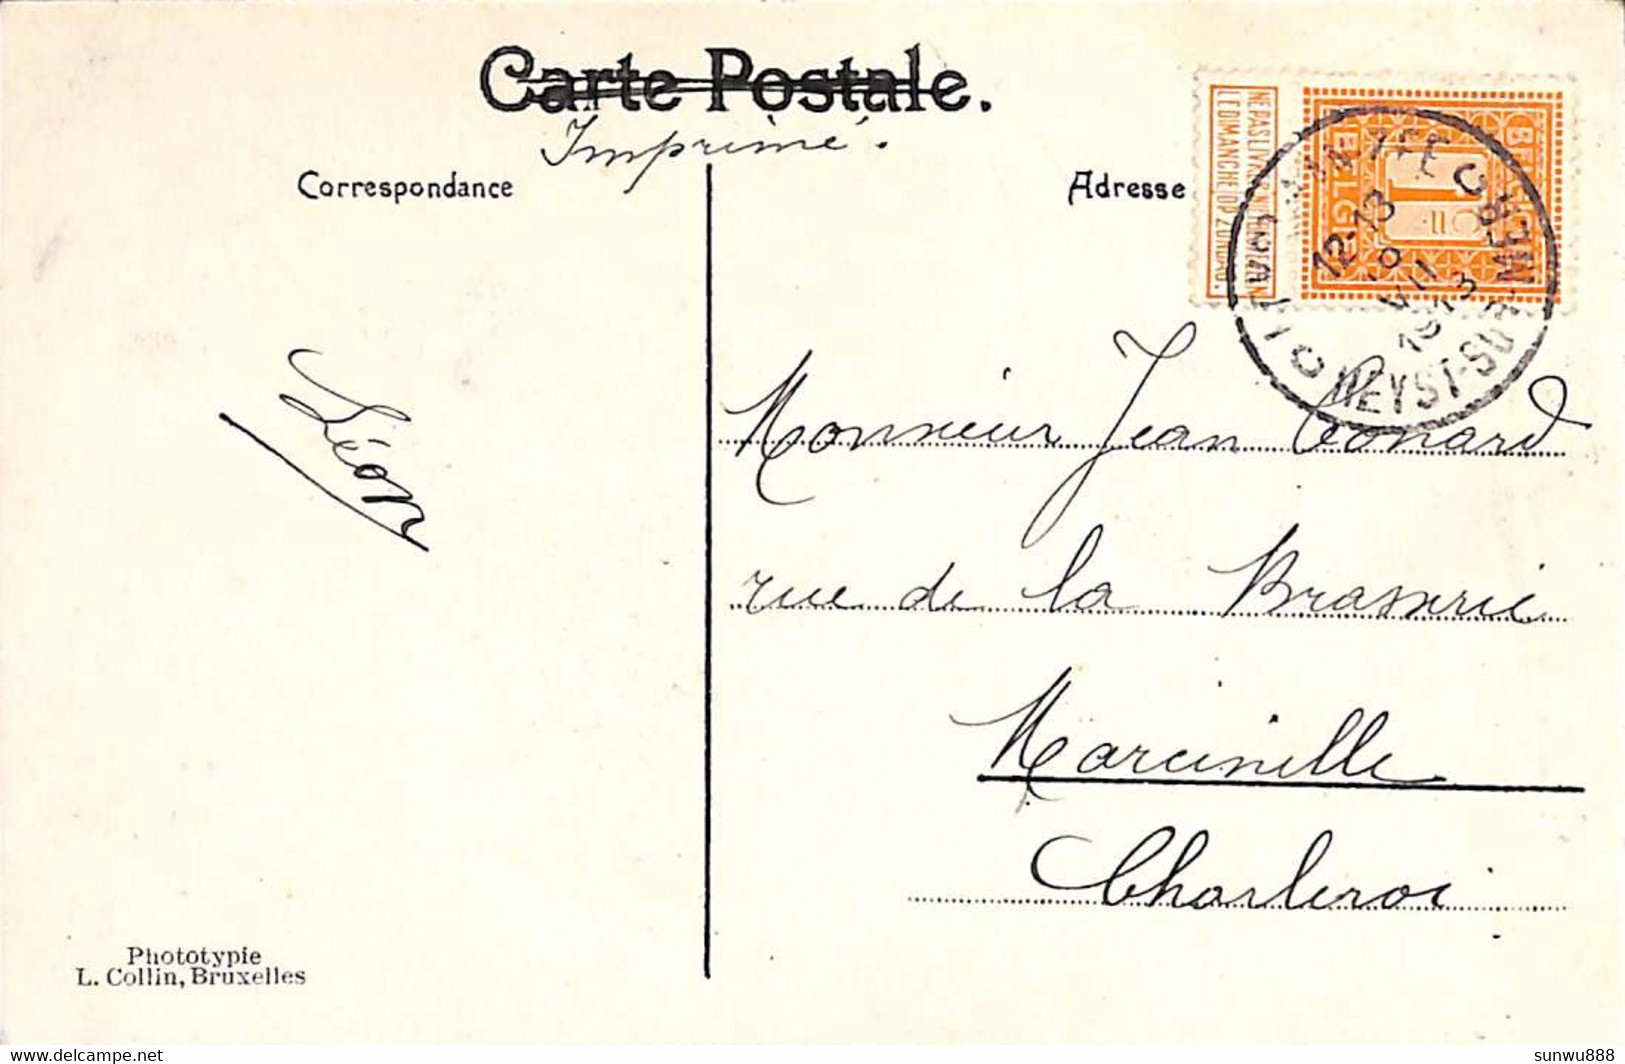 Carte Postale.
Imprimé.
Correspondance
Adresse
NE PAS LIVRER
LE DIMANCHE
OP ZONDAG.
BELG
1
12-13
VII
1913
HEYST-SUR-MER
Léon
Monsieur Jean Conard
rue de la Brasserie
Marcinelle
Charleroi
Phototypie
L. Collin, Bruxelles
delcampe.net
sunwu888